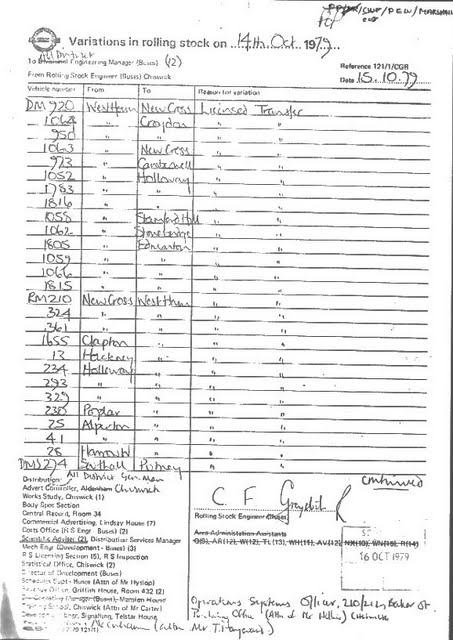 Variations in rolling stock on 14th Oct 1979
All District
To Divisional Engineering Manager (Buses) (12)
Reference 121/1/CGR
From Rolling Stock Engineer (Buses) Chiswick
Date 15.10.79
Vehicle number From To Reason for variation
DM 920 West Ham New Cross Licensed Transfer
1064 " Croydon " "
950 " " " "
1063 " New Cross " "
973 " Camberwell " "
1052 " Holloway " "
1783 " " " "
1816 " " " "
1055 " Stamford Hill " "
1062 " Stonebridge " "
1805 " Edmonton " "
1059 " " " "
1066 " " " "
1815 " " " "
RM 210 New Cross West Ham " "
324 " " " "
361 " " " "
1655 Clapton " " "
13 Hackney " " "
234 Holloway " " "
293 " " " "
329 " " " "
230 Poplar " " "
25 Alperton " " "
41 " " " "
28 Harrow W " " "
DMS 274 Southall Putney " "
continued
Distribution: All District Gen Man
Advert Controller, Aldenham Chiswick
Works Study, Chiswick (1)
Body Spec Section
Central Record, Room 34
Commercial Advertising, Lindsay House (7)
Costs Office (R S Engr Buses) (2)
Scientific Adviser (2), Distribution Services Manager
Mech Engr (Development - Buses) (3)
R S Licensing Section (5), R S Inspection
Statistical Office, Chiswick (2)
Director of Development (Buses)
Schedules Supt - Buses (Attn of Mr Hyslop)
Revenue Office, Griffith House, Room 432 (2)
Engineering Manager (Buses), Mansion House
Training School, Chiswick (Attn of Mr Carter)
Engr, Signalling, Telstar House
C F
Rolling Stock Engineer (Buses)
Area Administration Assistants
16 OCT 1979
Operations Systems Officer, 210/212, Baker St.